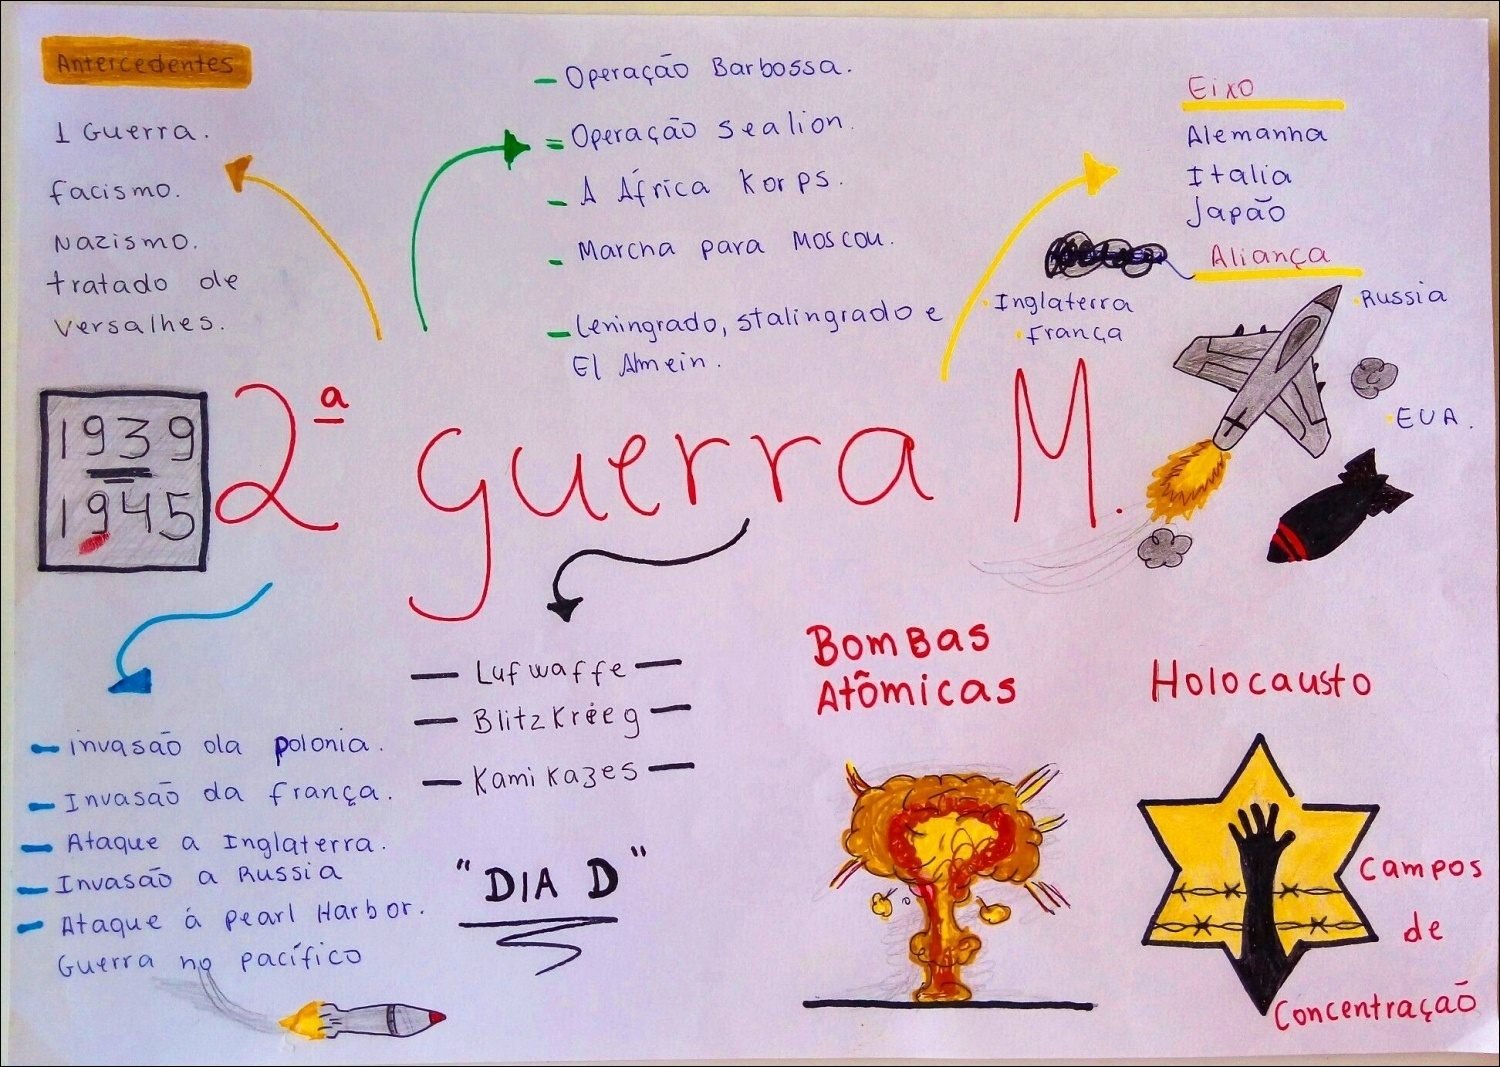 Antercedentes
1 Guerra.
facismo.
Nazismo.
tratado de
Versalhes.
- Operação Barbossa.
= Operação sealion.
- A África Korps.
- Marcha para Moscou.
- Leningrado, stalingrado e
El Almein.
Eixo
Alemanha
Italia
Japão
Aliança
• Inglaterra
• França
• Russia
• EUA.
1939
1945
2ª guerra M.
- invasão da polonia.
- Invasão da frança.
- Ataque a Inglaterra.
- Invasão a Russia
- Ataque á pearl Harbor.
Guerra no pacífico
— Lufwaffe —
— Blitzkrieeg —
— Kamikazes —
"DIA D"
Bombas
Atômicas
Holocausto
Campos
de
Concentração